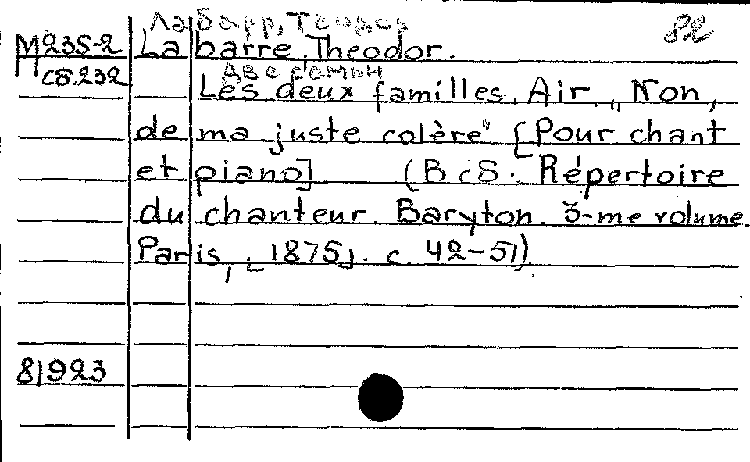 Лабарр, Теодор 82
М235-2 Labarre, Theodor.
сб.232 Две семьи
Les deux familles. Air „Non,
de ma juste colère" [Pour chant
et piano] (В сб. Répertoire
du chanteur. Baryton. 3-me volume.
Paris, [1875]. c. 42-51)
81923